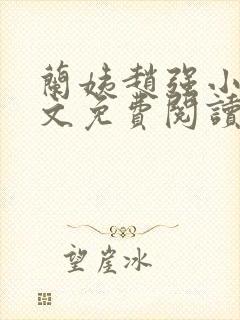 蘭姨趙强小
文免費閱讀
望崖冰